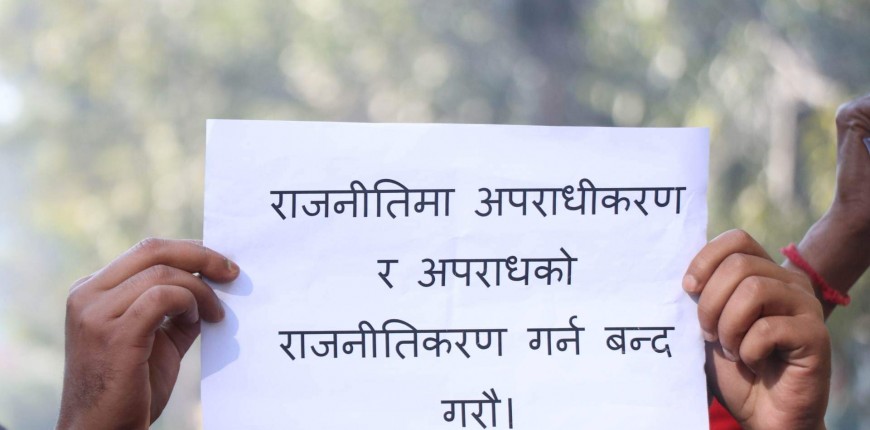 राजनीतिमा अपराधीकरण
र अपराधको
राजनीतिकरण गर्न बन्द
गरौ।